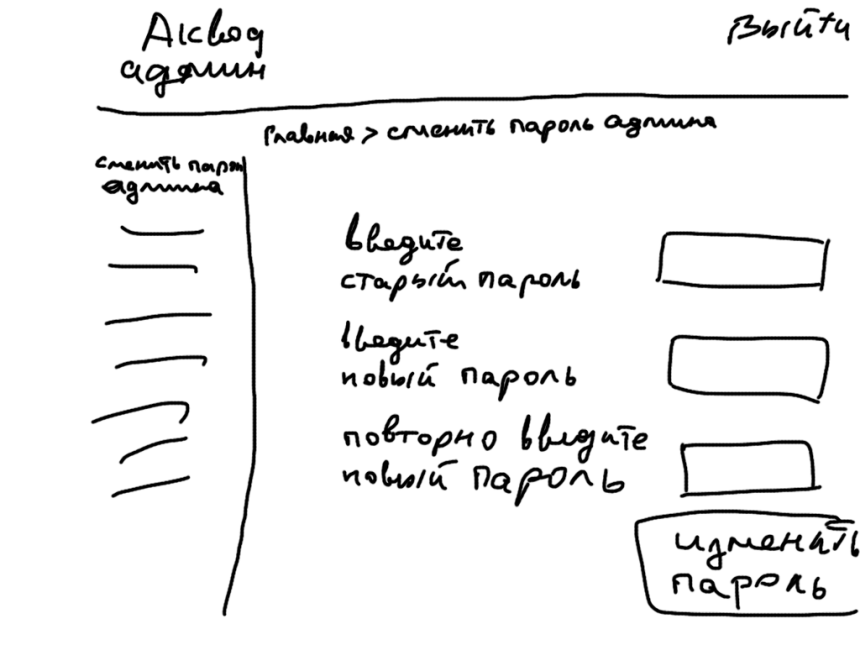 Аквод
админ
Выйти
Главная > сменить пароль админа
сменить парол
админа
введите
старый пароль
введите
новый пароль
повторно введите
новый пароль
изменить
пароль